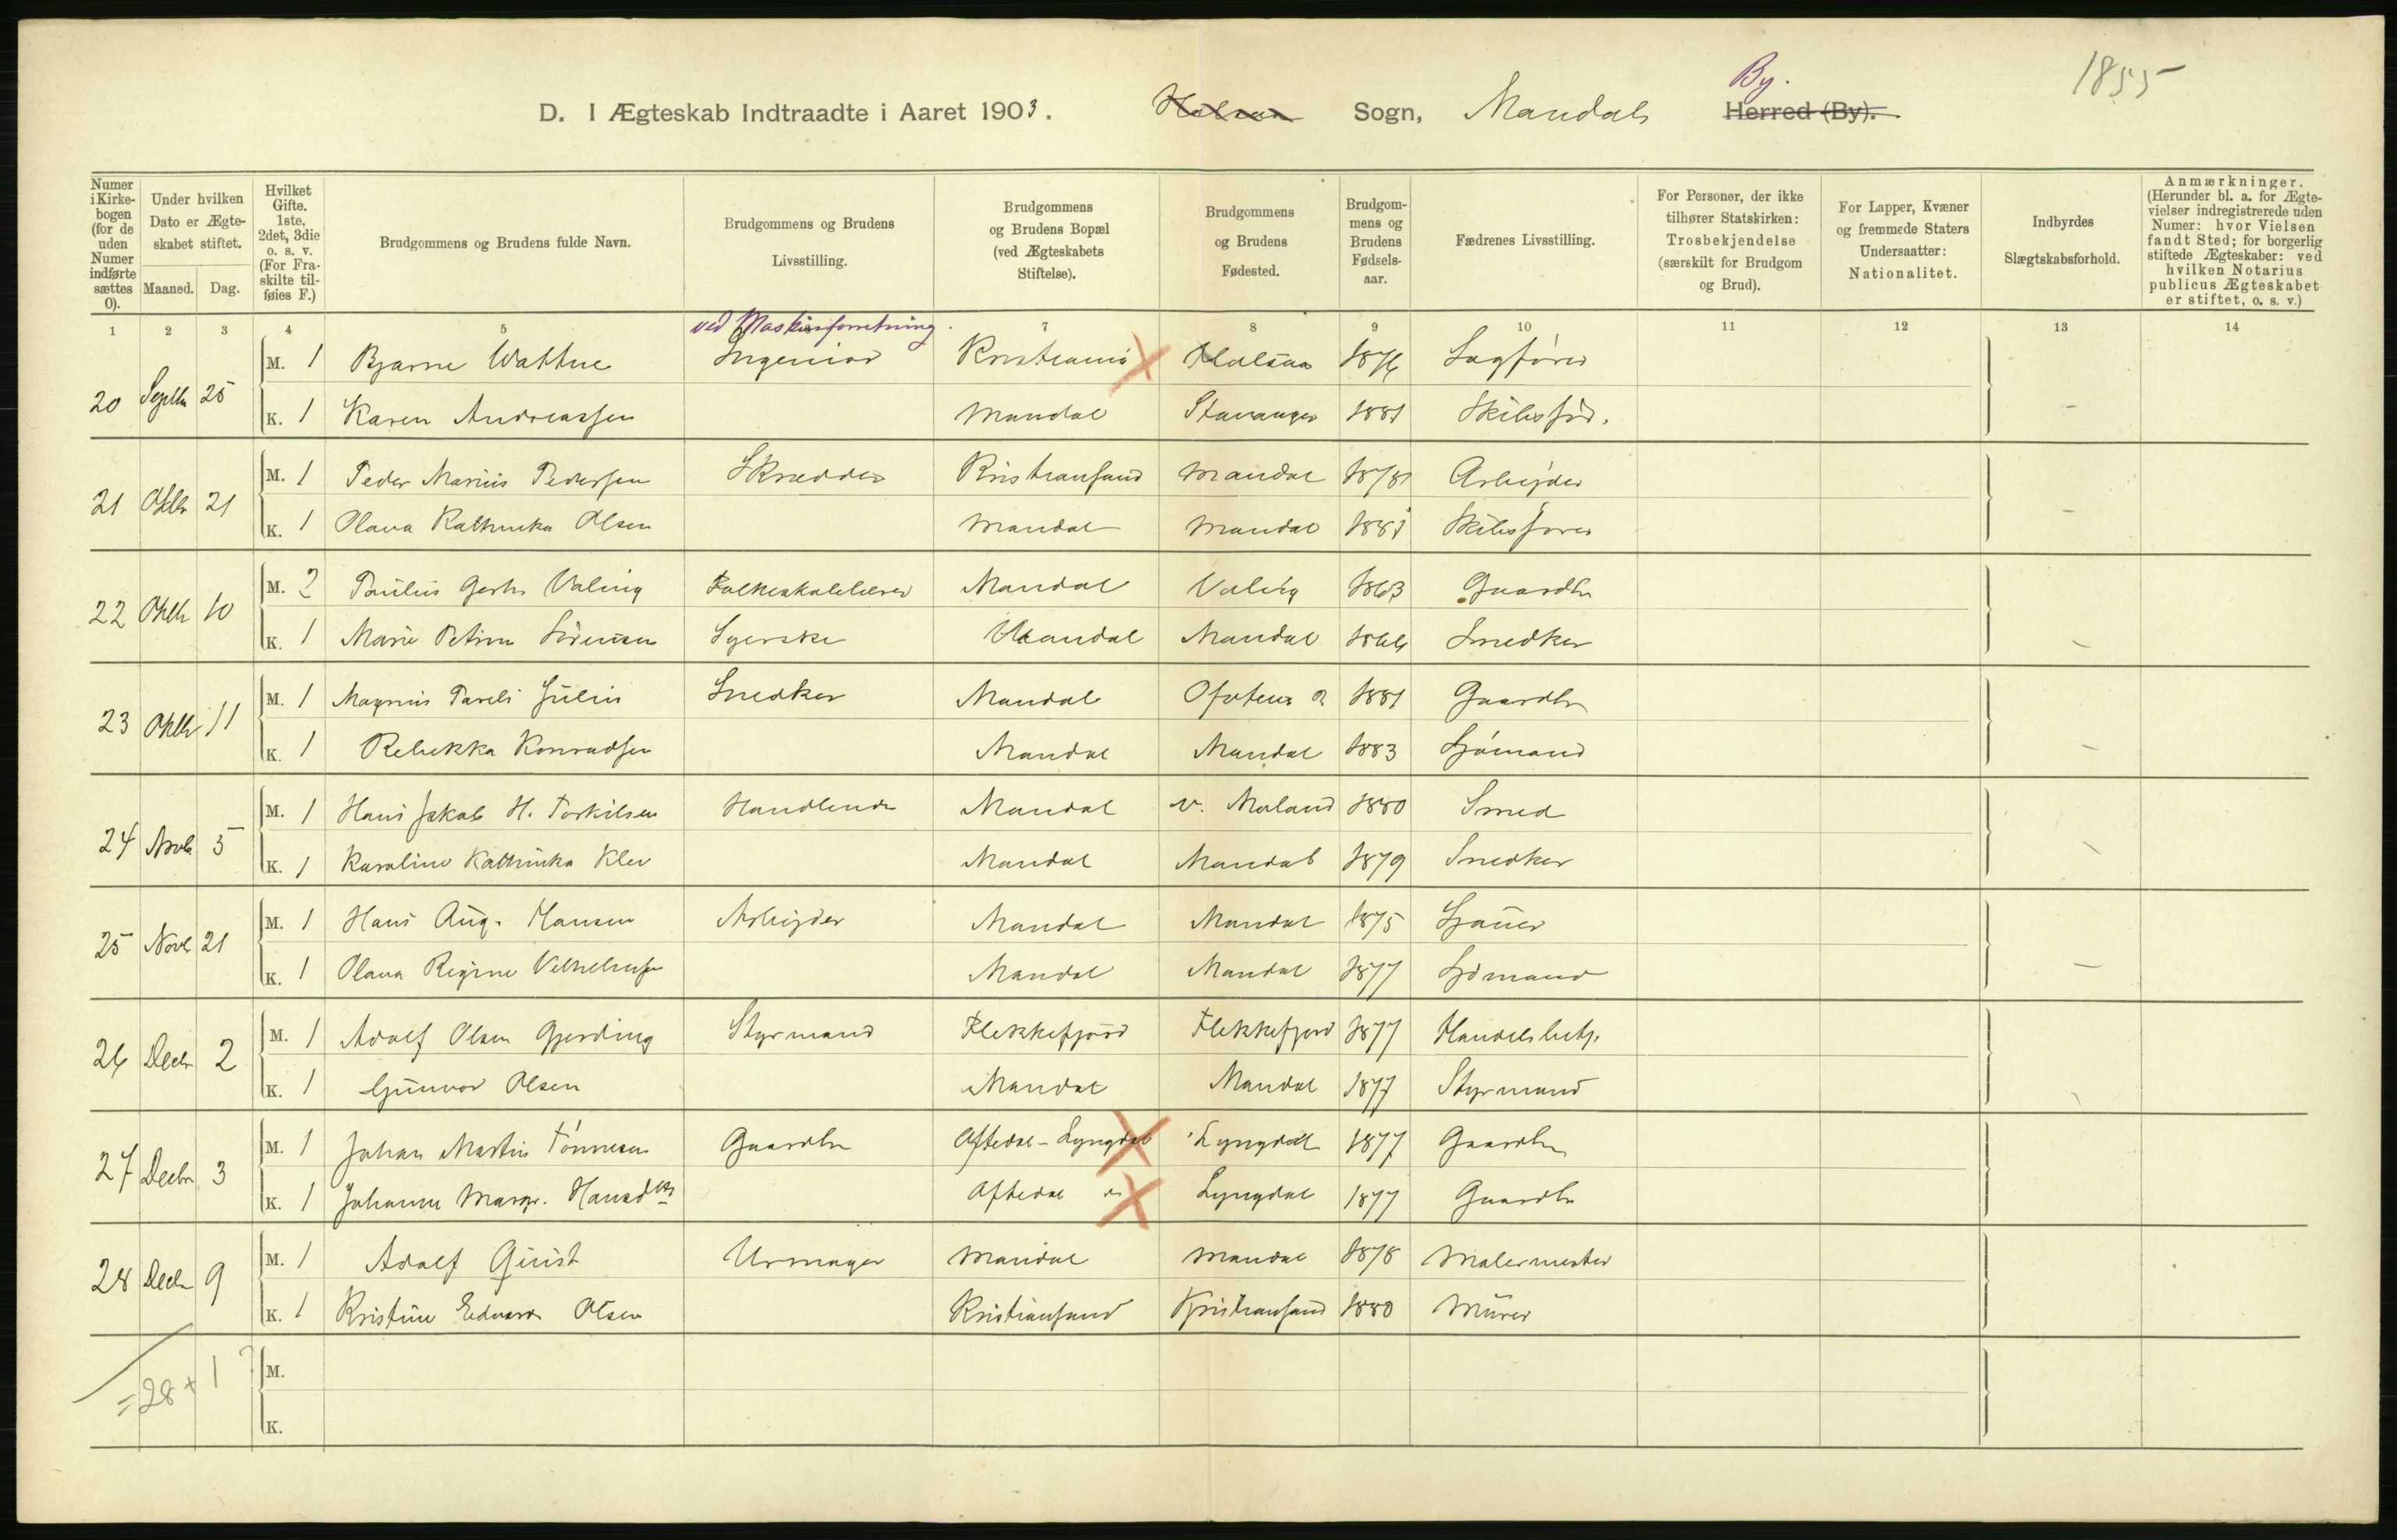 By.
1855
D. I Ægteskab Indtraadte i Aaret 1903. Halsaa Sogn, Mandals Herred (By).
Numer i Kirkebogen (for de uden Numer indførte sættes 0).
Under hvilken Dato er Ægteskabet stiftet.
Maaned. Dag.
Hvilket Gifte. 1ste, 2det, 3die o. s. v. (For Fraskilte tilføies F.)
Brudgommens og Brudens fulde Navn.
Brudgommens og Brudens Livsstilling.
Brudgommens og Brudens Bopæl (ved Ægteskabets Stiftelse).
Brudgommens og Brudens Fødested.
Brudgommens og Brudens Fødselsaar.
Fædrenes Livsstilling.
For Personer, der ikke tilhører Statskirken: Trosbekjendelse (særskilt for Brudgom og Brud).
For Lapper, Kvæner og fremmede Staters Undersaatter: Nationalitet.
Indbyrdes Slægtskabsforhold.
Anmærkninger. (Herunder bl. a. for Ægtevielser indregistrerede uden Numer: hvor Vielsen fandt Sted; for borgerlig stiftede Ægteskaber: ved hvilken Notarius publicus Ægteskabet er stiftet, o. s. v.)
1 2 3 4 5 7 8 9 10 11 12 13 14
ved Maskinforretning.
20 Septbr 25 M. 1 Bjarne Wattne Ingeniør Kristiania Halsaa 1876 Sagfører
K. 1 Karen Andreassen Mandal Stavanger 1881 Skibsfør. –
21 Oktbr 21 M. 1 Peder Marius Pedersen Skrædder Kristiansand Mandal 1878 Arbejder
K. 1 Olava Kathinka Olsen Mandal Mandal 1881 Skibsfører –
22 Oktbr 10 M. 2 Paulus Gerh. Valøig Folkeskolelærer Mandal Valøig 1863 Gaardbr
K. 1 Marie Petrine Sørensen Syerske Mandal Mandal 1866 Snedker –
23 Oktbr 11 M. 1 Magnus Pareli Julin Snedker Mandal Ofoten 1881 Gaardbr
K. 1 Rebekka Konradsen Mandal Mandal 1883 Sjømand –
24 Novb 5 M. 1 Hans Jakob H. Torkilsen Handlende Mandal v. Moland 1880 Smed
K. 1 Karoline Kathinka Klev Mandal Mandal 1879 Snedker –
25 Novb 21 M. 1 Hans Aug. Hansen Arbejder Mandal Mandal 1875 Sjauer
K. 1 Olava Regine Vilhelmsen Mandal Mandal 1877 Sjømand –
26 Decbr 2 M. 1 Adolf Olsen Gjerding Styrmand Flekkefjord Flekkefjord 1877 Handelsbetj.
K. 1 Gunvor Olsen Mandal Mandal 1877 Styrmand –
27 Decbr 3 M. 1 Johan Martin Tønnesen Gaardbr Aftedal - Lyngdal Lyngdal 1877 Gaardbr
K. 1 Johanne Margr. Hansdtr Aftedal Lyngdal 1877 Gaardbr
28 Decbr 9 M. 1 Adolf Quist Urmager Mandal Mandal 1878 Malermester
K. 1 Kristine Edvarda Olsen Kristiansand Kristiansand 1880 Murer
= 28 + 1 ? M.
K.